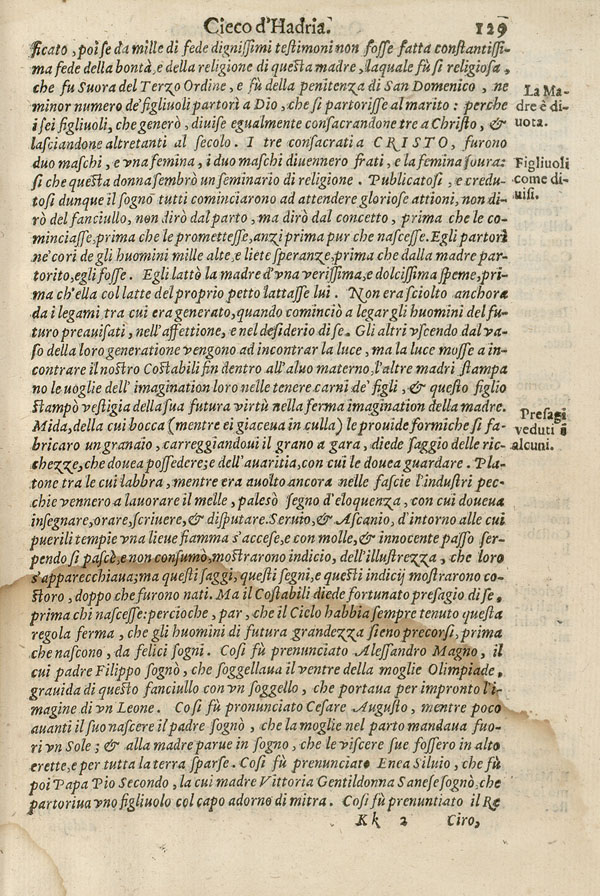 Cieco d'Hadria.
129
ficato, poi se da mille di fede dignissimi testimoni non fosse fatta constantissi-
ma fede della bontà, e della religione di questa madre, laquale fù sì religiosa,
che fu Suora del Terzo Ordine, e fù della penitenza di San Domenico, ne
minor numero de' figliuoli partorì a Dio, che si partorisse al marito: perche
i sei figliuoli, che generò, diuise egualmente consacrandone tre a Christo, &
lasciandone altretanti al secolo. I tre consacrati a CRISTO, furono
duo maschi, e vna femina, i duo maschi diuennero frati, e la femina soura:
sì che questa donna sembrò vn seminario di religione. Publicatosi, e credu-
tosi dunque il sogno tutti cominciarono ad attendere gloriose attioni, non di-
rò del fanciullo, non dirò dal parto, ma dirò dal concetto, prima che le co-
minciasse, prima che le promettesse, anzi prima pur che nascesse. Egli partorì
ne' cori de gli huomini mille alte, e liete speranze, prima che dalla madre par-
torito, egli fosse. Egli lattò la madre d'vna verissima, e dolcissima speme, pri-
ma ch'ella col latte del proprio petto lattasse lui. Non era sciolto anchora
da i legami tra cui era generato, quando cominciò a legar gli huomini del fu-
turo preauisati, nell'affettione, e nel desiderio di se. Gli altri vscendo dal va-
so della loro generatione vengono ad incontrar la luce, ma la luce mosse a in-
contrare il nostro Costabili fin dentro all'aluo materno, l'altre madri stampa
no le uoglie dell' imagination loro nelle tenere carni de' figli, & questo figlio
stampò vestigia della sua futura virtù nella ferma imagination della madre.
Mida, della cui bocca (mentre ei giaceua in culla) le prouide formiche si fa-
bricaro un granaio, carreggiandoui il grano a gara, diede saggio delle ric-
chezze, che douea possedere; e dell'auaritia, con cui le douea guardare. Pla-
tone tra le cui labbra, mentre era auolto ancora nelle fascie l'industri pec-
chie vennero a lauorare il melle, palesò segno d'eloquenza, con cui doueua
insegnare, orare, scriuere, & disputare. Seruio, & Ascanio, d'intorno alle cui
puerili tempie vna lieue fiamma s'accese, e con molle, & innocente passo ser-
pendo si pascè, e non consumò, mostrarono indicio, dell'illustrezza, che loro
s'apparecchiaua; ma questi saggi, questi segni, e questi indicij mostrarono co-
storo, doppo che furono nati. Ma il Costabili diede fortunato presagio di se,
prima chi nascesse: percioche, par, che il Ciclo habbia sempre tenuto questa
regola ferma, che gli huomini di futura grandezza sieno precorsi, prima
che nascono, da felici sogni. Così fù prenunciato Alessandro Magno, il
cui padre Filippo sognò, che soggellaua il ventre della moglie Olimpiade,
grauida di questo fanciullo con vn soggello, che portaua per impronto l'i-
magine di vn Leone. Così fù pronunciato Cesare Augusto, mentre poco
auanti il suo nascere il padre sognò, che la moglie nel parto mandaua fuo-
ri vn Sole; & alla madre parue in sogno, che le viscere sue fossero in alto
erette, e per tutta la terra sparse. Così fù prenunciato Enea Siluio, che fù
poi Papa Pio Secondo, la cui madre Vittoria Gentildonna Sanese sognò, che
partoriua vno figliuolo col capo adorno di mitra. Così fù prenuntiato il Re
Kk 2 Ciro,
La Ma-
dre è di-
uota.
Figliuoli
come di-
uisi.
Presagi
veduti ĩ
alcuni.